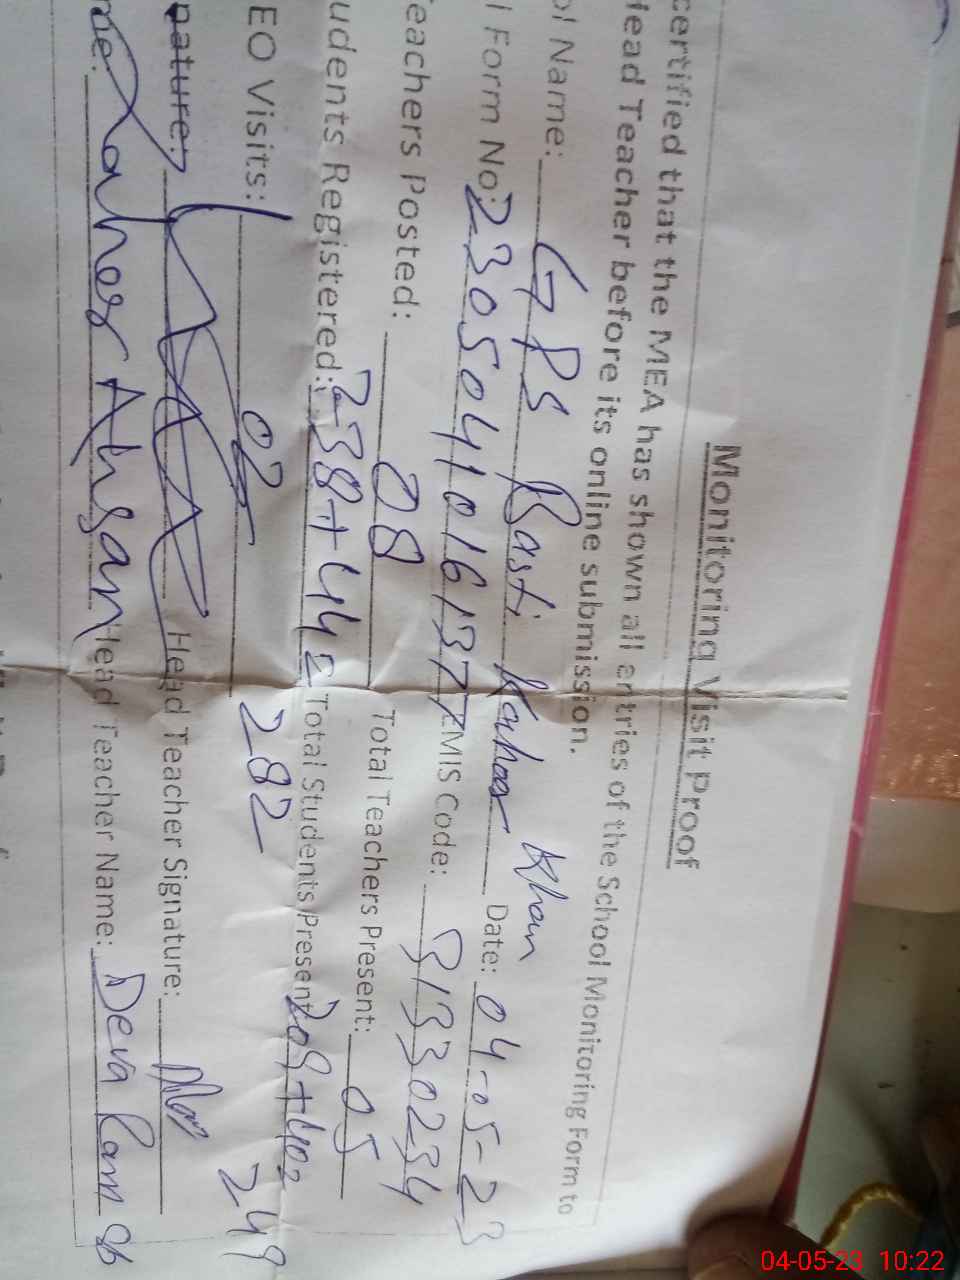 Monitoring Visit Proof
certified that the MEA has shown all entries of the School Monitoring Form to
Head Teacher before its online submission.
ol Name: GPS Basti Kahoor Khan Date: 04-05-23
l Form No: 2305041016137 EMIS Code: 31330234
Teachers Posted: 08 Total Teachers Present: 05
udents Registered: 238+44= 282 Total Students Present 209+40= 249
EO Visits: 02
nature: Head Teacher Signature:
me: Ahsan Head Teacher Name: Deva Ram
04-05-23 10:22